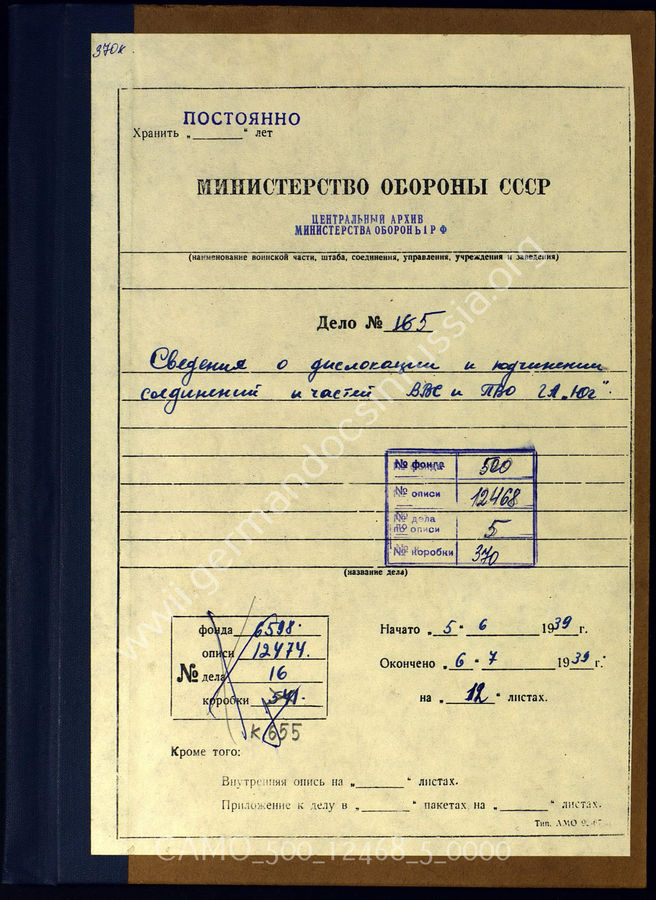 370к.
ПОСТОЯННО
Хранить „______“ лет
МИНИСТЕРСТВО ОБОРОНЫ СССР
ЦЕНТРАЛЬНЫЙ АРХИВ
МИНИСТЕРСТВА ОБОРОНЫ РФ
(наименование воинской части, штаба, соединения, управления, учреждения и заведения)
Дело № 165
Сведения о дислокации и подчинении
соединений и частей ВВС и ПВО ГА „Юг".
№ фонда 500
№ описи 12468
№ дела по описи 5
№ коробки 370
(название дела)
фонда 6598.
описи 12474.
№ дела 16
коробки 541.
к 655
Начато „5“ 6 1939 г.
Окончено „6“ 7 1939 г.
на „12“ листах.
Кроме того:
Внутренняя опись на „______“ листах.
Приложение к делу в „______“ пакетах на „______“ листах.
Тип. АМО
www.germandocsinrussia.org
CAMO_500_12468_5_0000